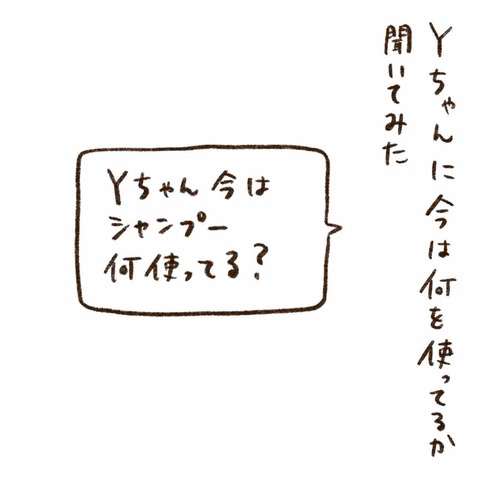 Yちゃんに今は何を使ってるか
聞いてみた
Yちゃん今は
シャンプー
何使ってる?